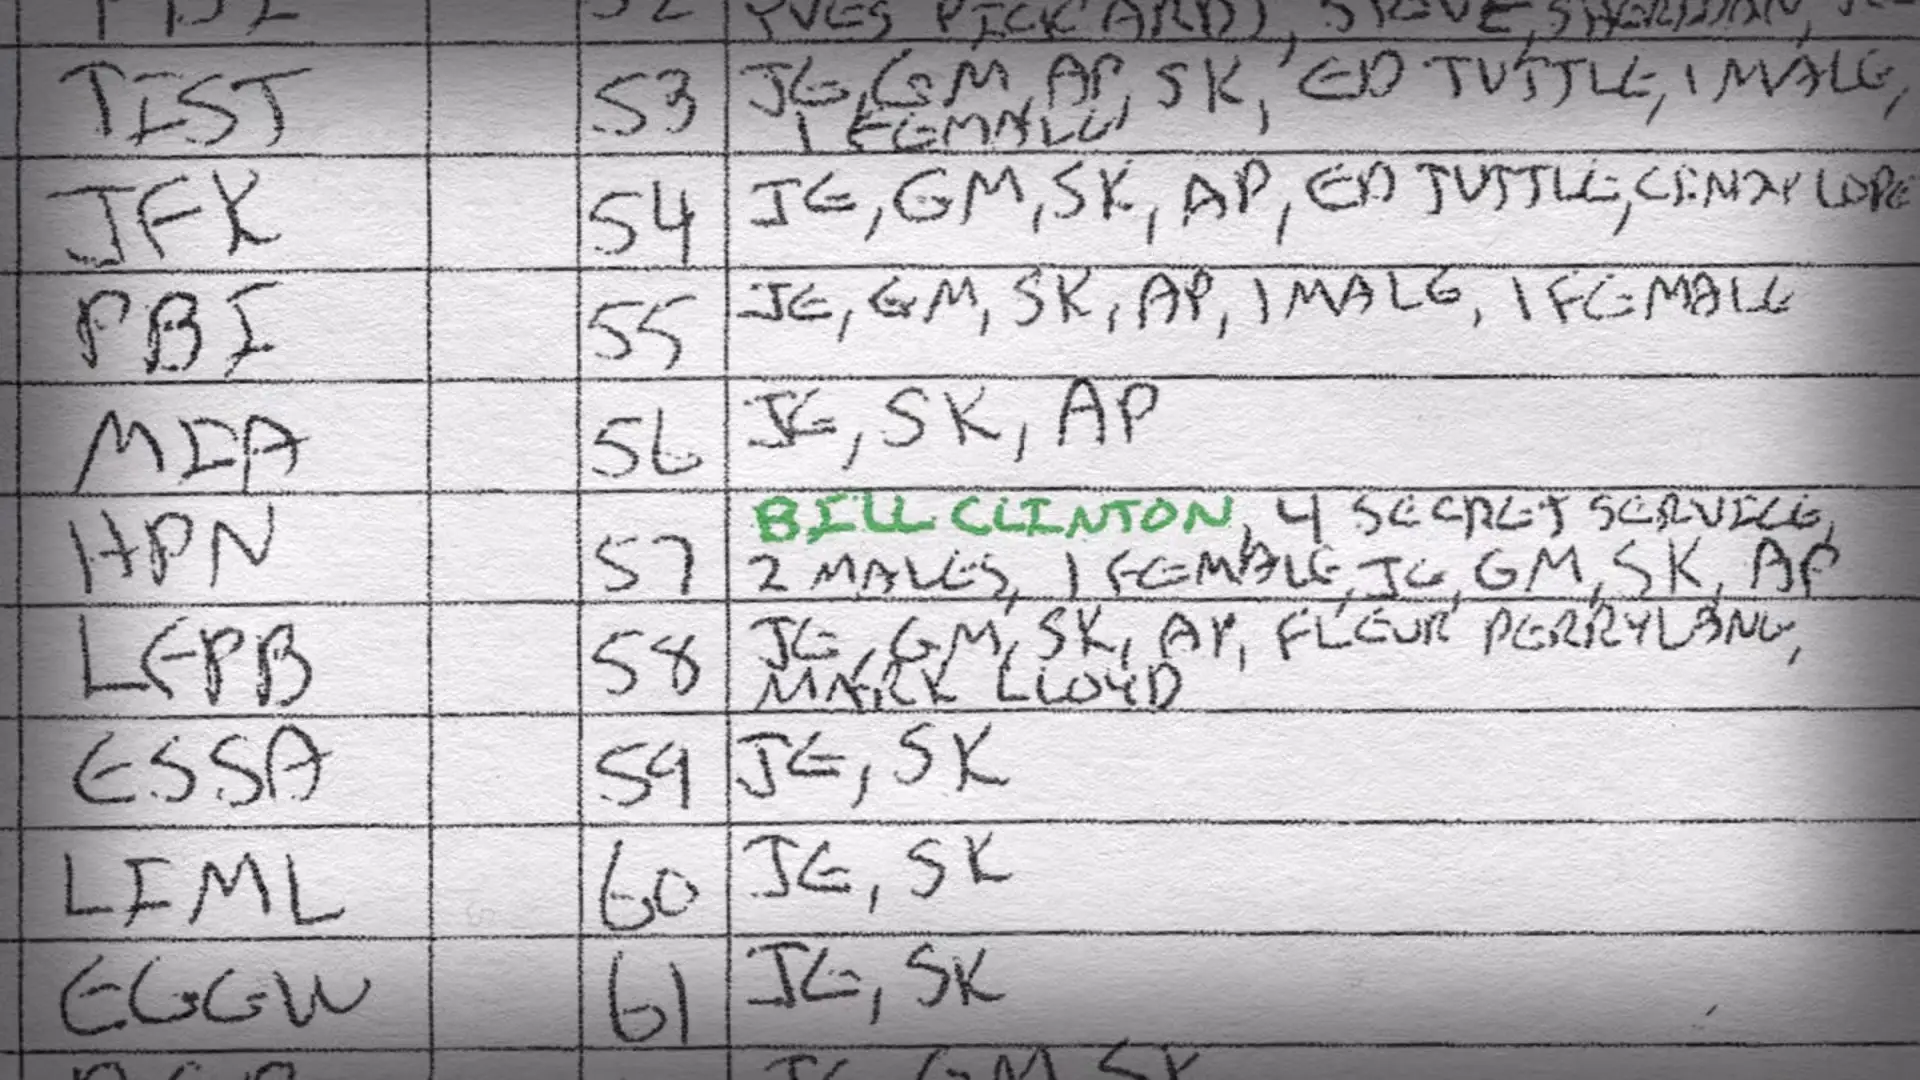 YVES PICKARD), STEVE SHERIDAN,
TIST 53 JE, GM, AP, SK, ED TUTTLE, 1 MALE,
1 FEMALE
JFK 54 JE, GM, SK, AP, ED TUTTLE, CINDY LOPE
PBI 55 JE, GM, SK, AP, 1 MALE, 1 FEMALE
MIA 56 JE, SK, AP
HPN 57 BILL CLINTON, 4 SECRET SERVICE,
2 MALES, 1 FEMALE, JE, GM, SK, AP
LFPB 58 JE, GM, SK, AP, FLEUR PERRYLANG,
MARK LLOYD
ESSA 59 JE, SK
LIML 60 JE, SK
EGGW 61 JE, SK
JE, GM, SK